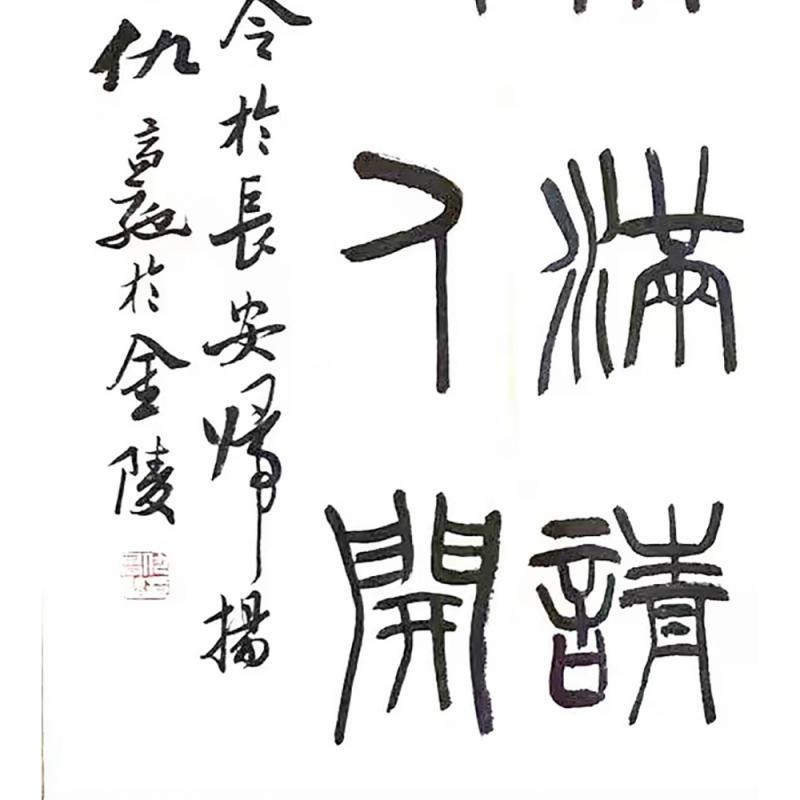 滿請
人開
令於長安歸揚
仇高馳於金陵